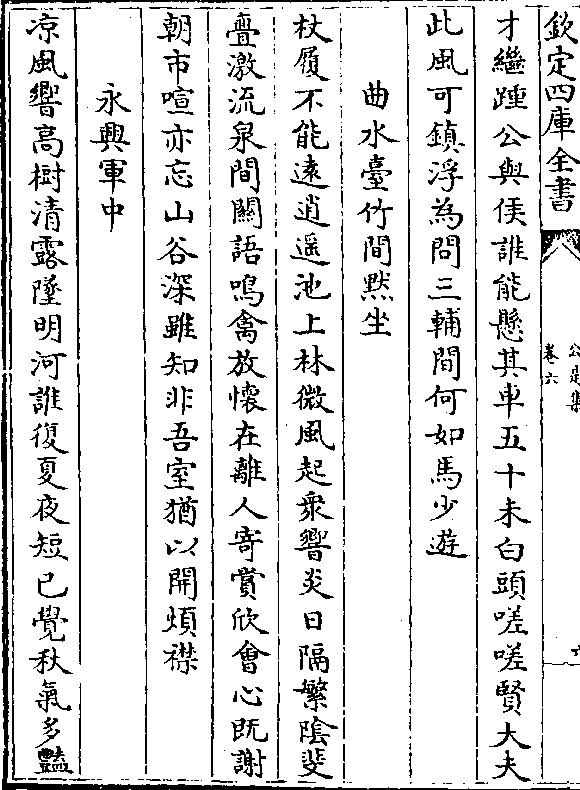 欽定四庫全書
公是集
卷六
六
才繼踵公與侯誰能懸其車五十未白頭嗟嗟賢大夫
此風可鎮浮為問三輔間何如馬少遊
曲水臺竹間黙坐
杖履不能遠逍遥池上林微風起衆響炎日隔繁陰斐
亹激流泉間關語鳴禽放懐在離人寄賞欣會心既謝
朝市喧亦忘山谷深雖知非吾室猶以開煩襟
永興軍中
凉風響高樹清露墜明河誰復夏夜短已覺秋氣多豔